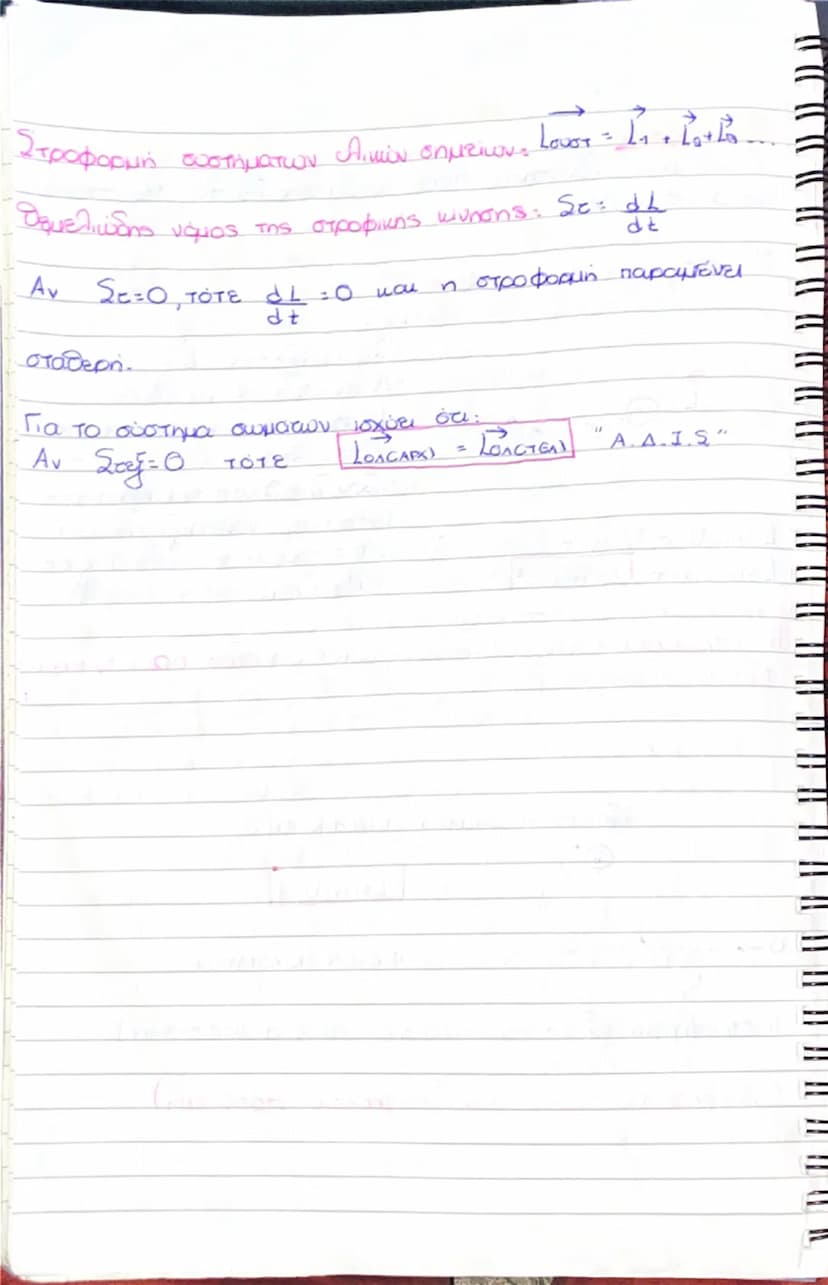 Στροφορμή συστήματων υλικών σημείων: L⃗συστ = L⃗₁ + L⃗₂ + L⃗₃ ...
Θεμελιώδης νόμος της στροφικης κινησης: Στ = dL/dt
Αν Στ=0, τότε dL/dt = 0 και η στροφορμή παραμένει
σταθερή.
Για το σύστημα σωμάτων ισχύει ότι:
Αν Στεξ=0 τότε L⃗ολ(αρχ) = L⃗ολ(τελ) "Α.Δ.Ι.S"